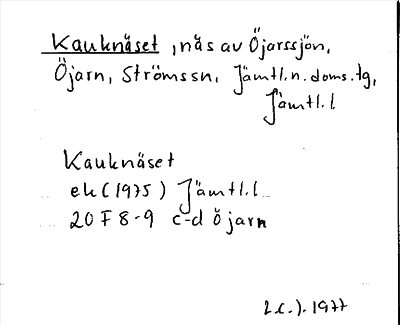 Kauknäset, näs av Öjarssjön,
Öjarn, Strömssn, Jämtl.n.doms.tg,
Jämtl.l
Kauknäset
ek (1975) Jämtl.l
20 F 8-9 c-d Öjarn
1977